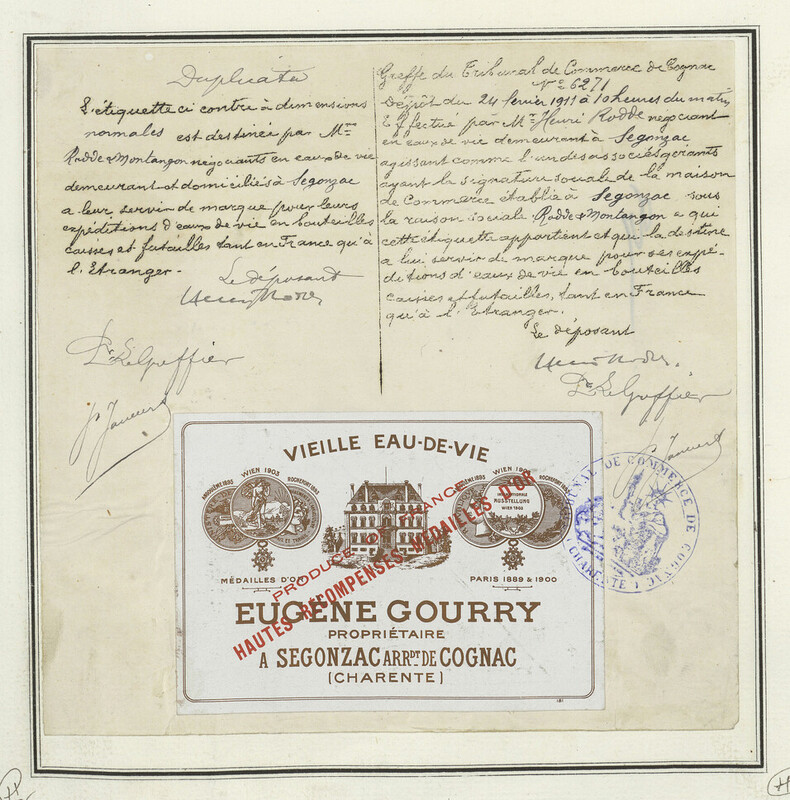 Duplicata
L'étiquette ci contre à dimensions
normales est destinée par Mrs
Rodde & Montangon négociants en eaux de vie
demeurant et domiciliés à Segonzac
a leur servir de marque pour leurs
expéditions d'eaux de vie en bouteilles
caisses et futailles tant en France qu'à
l'Etranger.
Le déposant
Pr Le Greffier
Greffe du Tribunal de Commerce de Cognac
No 6271
Dépôt du 24 fevrier 1911 à 10 heures du matin
Effectué par Mr Henri Rodde négociant
en eaux de vie demeurant à Segonzac
agissant comme l'un des associés gérants
ayant la signature sociale de la maison
de Commerce établie à Segonzac sous
la raison sociale Rodde & Montangon a qui
cette étiquette appartient et qui la destine
a lui servir de marque pour ses expé-
ditions d'eaux de vie en bouteilles
caisses et futailles, tant en France
qu'à l'Etranger.
Le déposant
Pr Le Greffier
VIEILLE EAU-DE-VIE
WIEN 1903
ROCHEFORT
WIEN
AUSSTELLUNG
WIEN 1903
PRODUCE OF FRANCE
HAUTES RÉCOMPENSES MÉDAILLES D'OR
MÉDAILLES D'OR
PARIS 1889 & 1900
EUGÈNE GOURRY
PROPRIÉTAIRE
A SEGONZAC ARRDT DE COGNAC
(CHARENTE)
TRIBUNAL DE COMMERCE DE COGNAC
CHARENTE
H
H